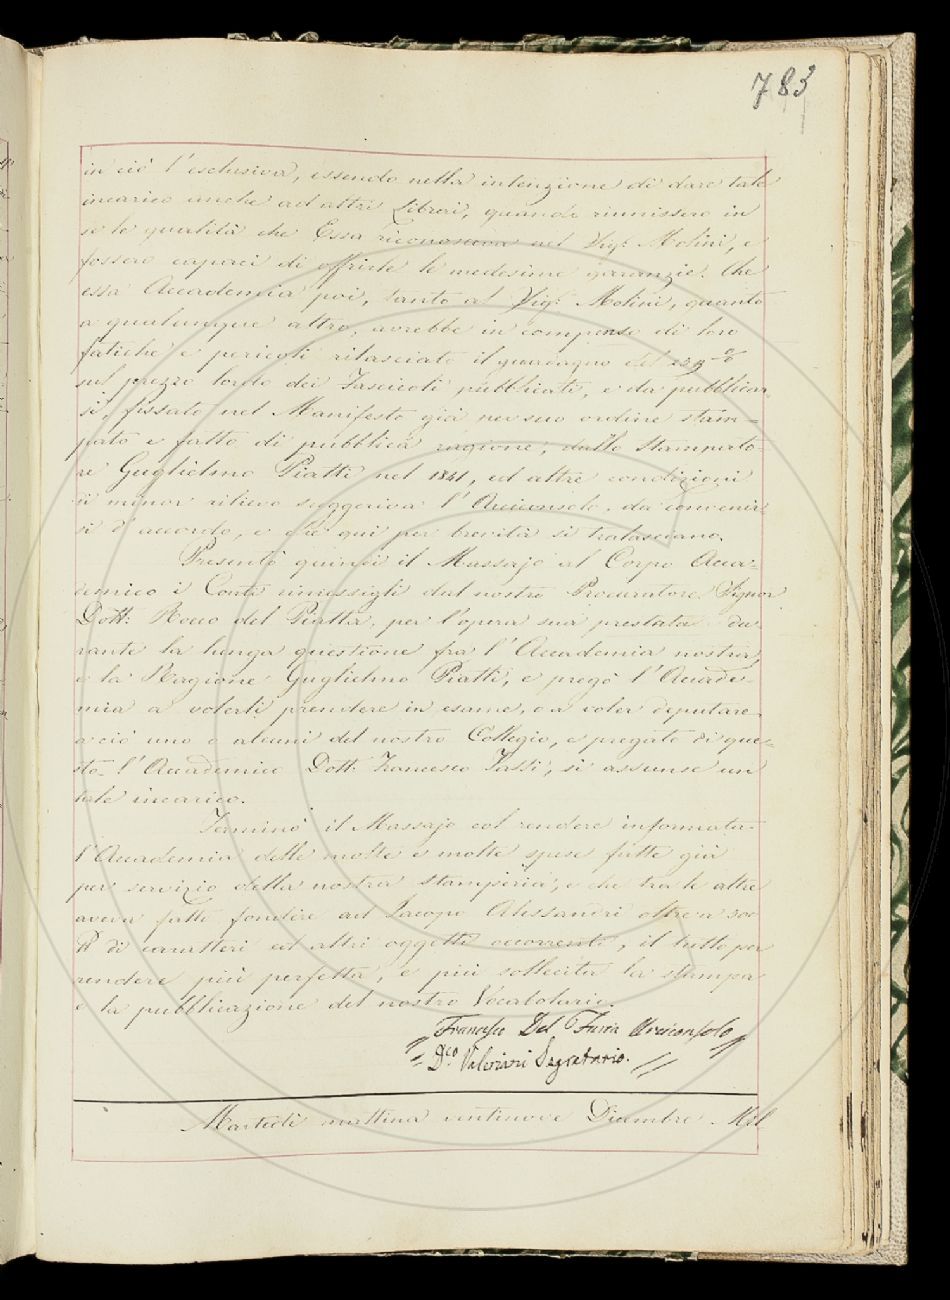 783
in ciò l'esclusiva, essendo nella intenzione di dare tale
incarico anche ad altri Librai, quando riunissero in
se le qualità che Essa riconosceva nel Sig.r Molini, e
fossero capaci di offrirle le medesime garanzie. Che
essa Accademia poi, tanto al Sig.r Molini, quanto
a qualunque altro, avrebbe in compenso di loro
fatiche e pericoli rilasciato il guadagno del
sul prezzo lordo dei Fascicoli pubblicati, e da pubblicar-
si, fissato nel Manifesto già per suo ordine stam-
pato e fatto di pubblica ragione, dallo Stampato-
re Guglielmo Piatti nel 1841, ed altre condizioni
di minor rilievo suggeriva l'Arciconsolo, da convenir-
si d'accordo, e che qui per brevità si tralasciano.
Presentò quindi il Massajo al Corpo Acca-
demico i Conti rimessigli dal nostro Procuratore Signor
Dott: Rocco del Piatta, per l'opera sua prestata du-
rante la lunga questione fra l'Accademia nostra,
e la Ragione Guglielmo Piatti, e pregò l'Accade-
mia a volerli prendere in esame, o a voler deputare
a ciò uno o alcuni del nostro Collegio, e pregato di que-
sto l'Accademico Dott. Francesco Tassi, si assunse un
tale incarico.
Terminò il Massajo col rendere informata
l'Accademia delle molte e molte spese fatte già
per servizio della nostra stamperia, e che tra le altre
aveva fatti fondere ad Jacopo Alessandri oltre a 300
di caratteri ed altri oggetti occorrenti, il tutto per
rendere più perfetta, e più sollecita la stampa
e la pubblicazione del nostro Vocabolario.
Francesco Del Furia Arciconsolo
D.co Valeriani Segretario.
Martedì mattina ventinove Dicembre Mil